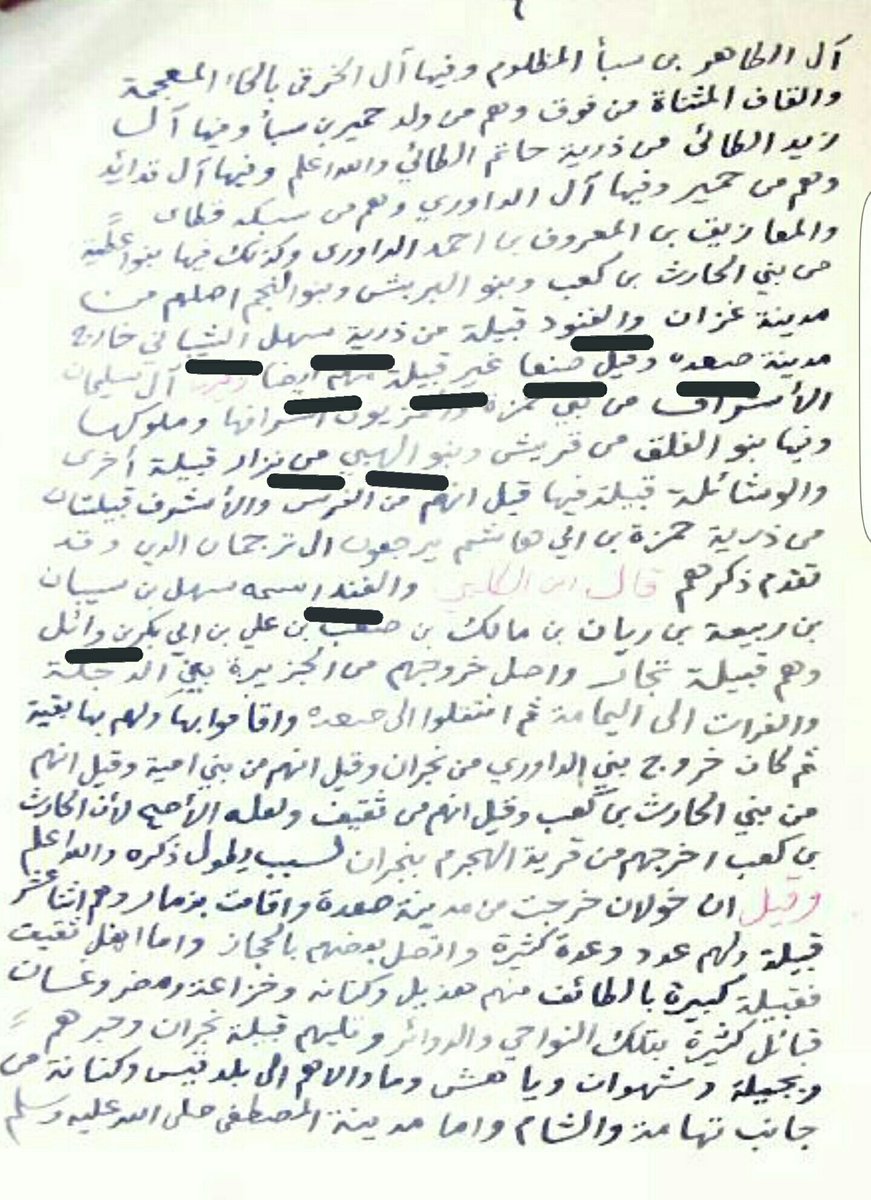 آل الطاهر بن سبأ المظلوم وفيها آل الخرقي بالخاء المعجمة
والقاف المثناة من فوق وهم من ولد حمير بن سبأ وفيها آل
زيد الطائي من ذرية حاتم الطائي والله اعلم وفيها آل
وهم من حمير وفيها آل الداوري وهم من
بن المعروف بن احمد الداوري وكذلك فيها بنوا عطية
من بني الحارث بن كعب وبنو البربشى وبنو النجم اصلهم من
مدينة غزان والفنود قبيلة من ذرية سهل الشبا في خارج
مدينة صعده وقيل صنعا غير قبيلة منهم ايضا وفيها آل سليمان
الأشراف من بني حمزة اشرافها وملوكها
وفيها بنو الفلق من قريش وبنو الهبي من نزار قبيلة أخرى
قبيلة فيها قيل انهم من الفرس والأشرف قبيلتان
من ذرية حمزة بن ابي هاشم يرجعون الى ترجمان الدين وقد
تقدم ذكرهم قال ابن الكلبي والفند اسمه سهل بن سيبان
بن ربيعة بن ريان بن مالك بن صعب بن علي بن ابي بكر بن وائل
وهم قبيلة واصل خروجهم من الجزيرة بين الدجلة
والفرات الى اليمامة ثم انتقلوا الى صعده واقاموا بها ولهم بها بقية
ثم كان خروج بني الداوري من نجران وقيل انهم من بني امية وقيل انهم
من بني الحارث بن كعب وقيل انهم من ثقيف ولعله الأصح لأن الحارث
بن كعب اخرجهم من قرية الهجرم بنجران لسبب يطول ذكره والله اعلم
وقيل ان خولان خرجت من مدينة صعدة واقامت بذمار وهم اثنا عشر
قبيلة ولهم عدد وعدة كثيرة واتصل بعضهم بالحجاز واما اهل ثقيف
فقبيلة كبيرة بالطائف منهم هذيل وكنانه وخزاعة ومضر وغسان
قبائل كثيرة بتلك النواحي والدوائر وتليهم قبيلة نجران
وبجيلة وشهوان ويا هش وما والاهم الى بلد قيس وكنانة من
جانب تهامة والشام واما مدينة المصطفى صلى الله عليه وسلم